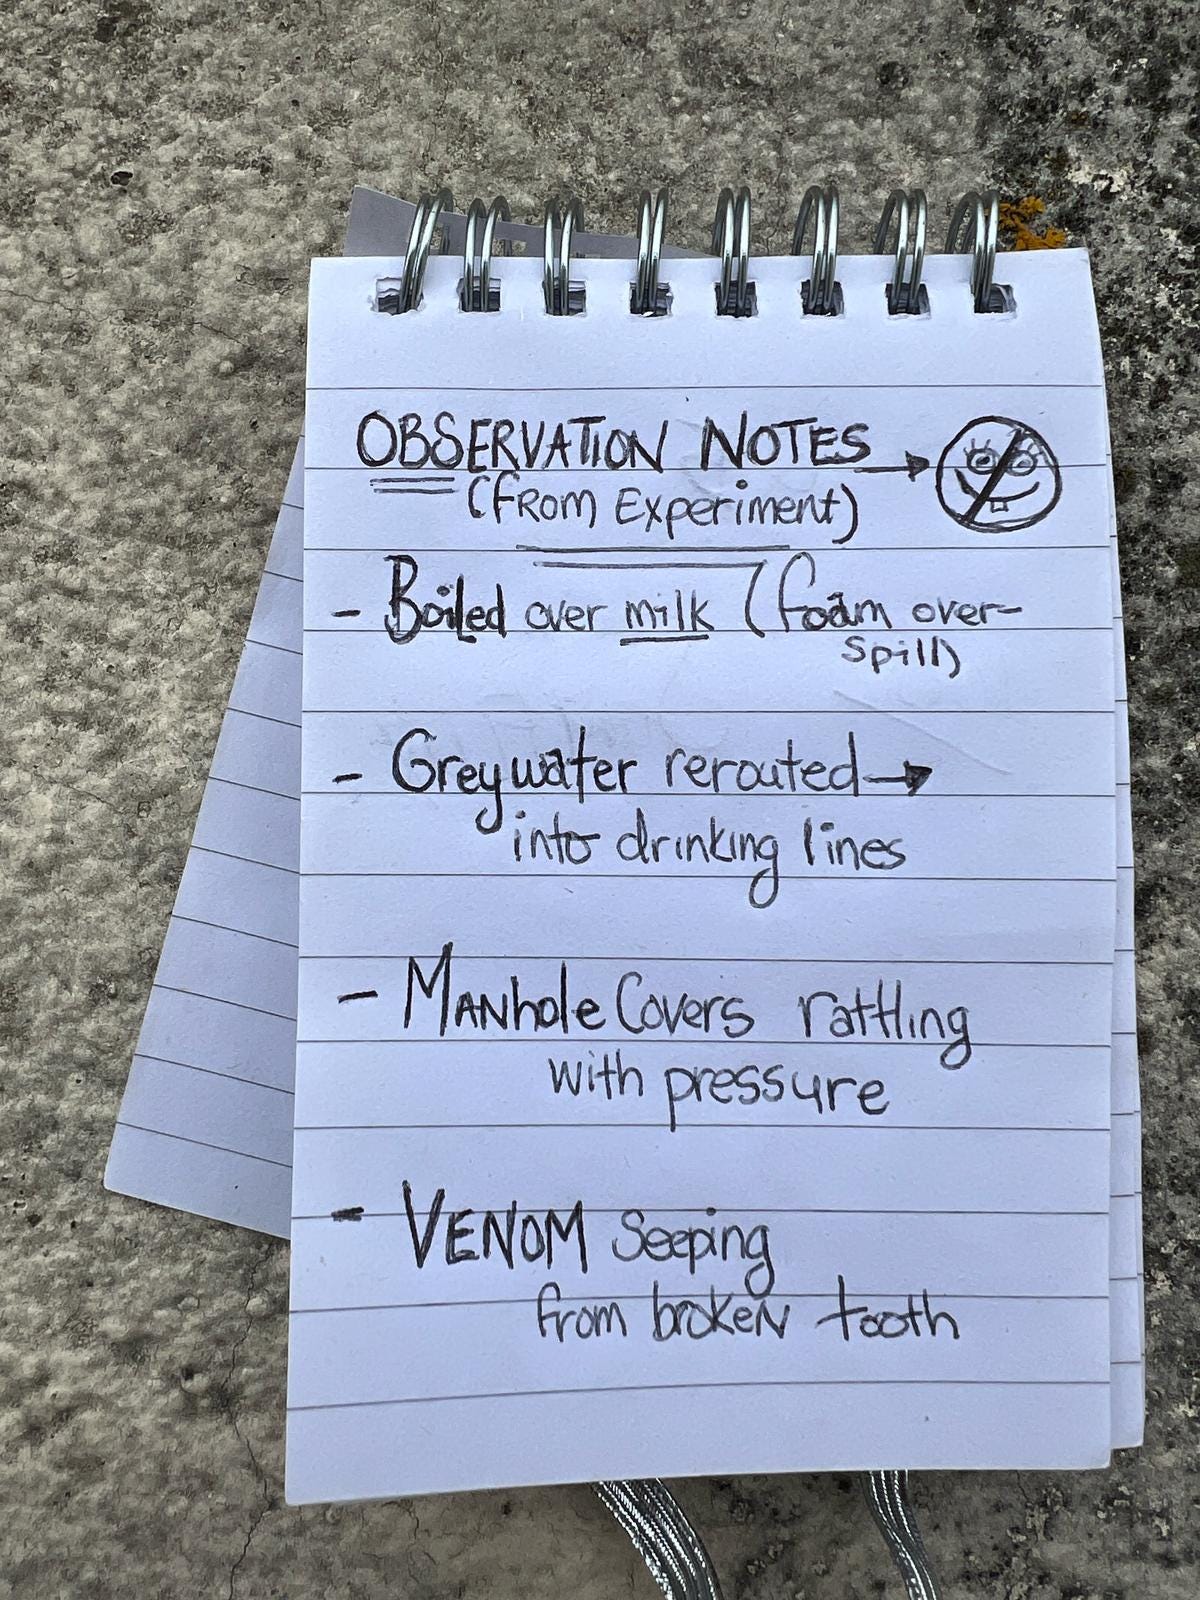 OBSERVATION NOTES →
(FROM Experiment)
- Boiled over milk (foam over-
spill)
- Greywater rerouted →
into drinking lines
- MANhole Covers rattling
with pressure
- VENOM Seeping
from broken tooth